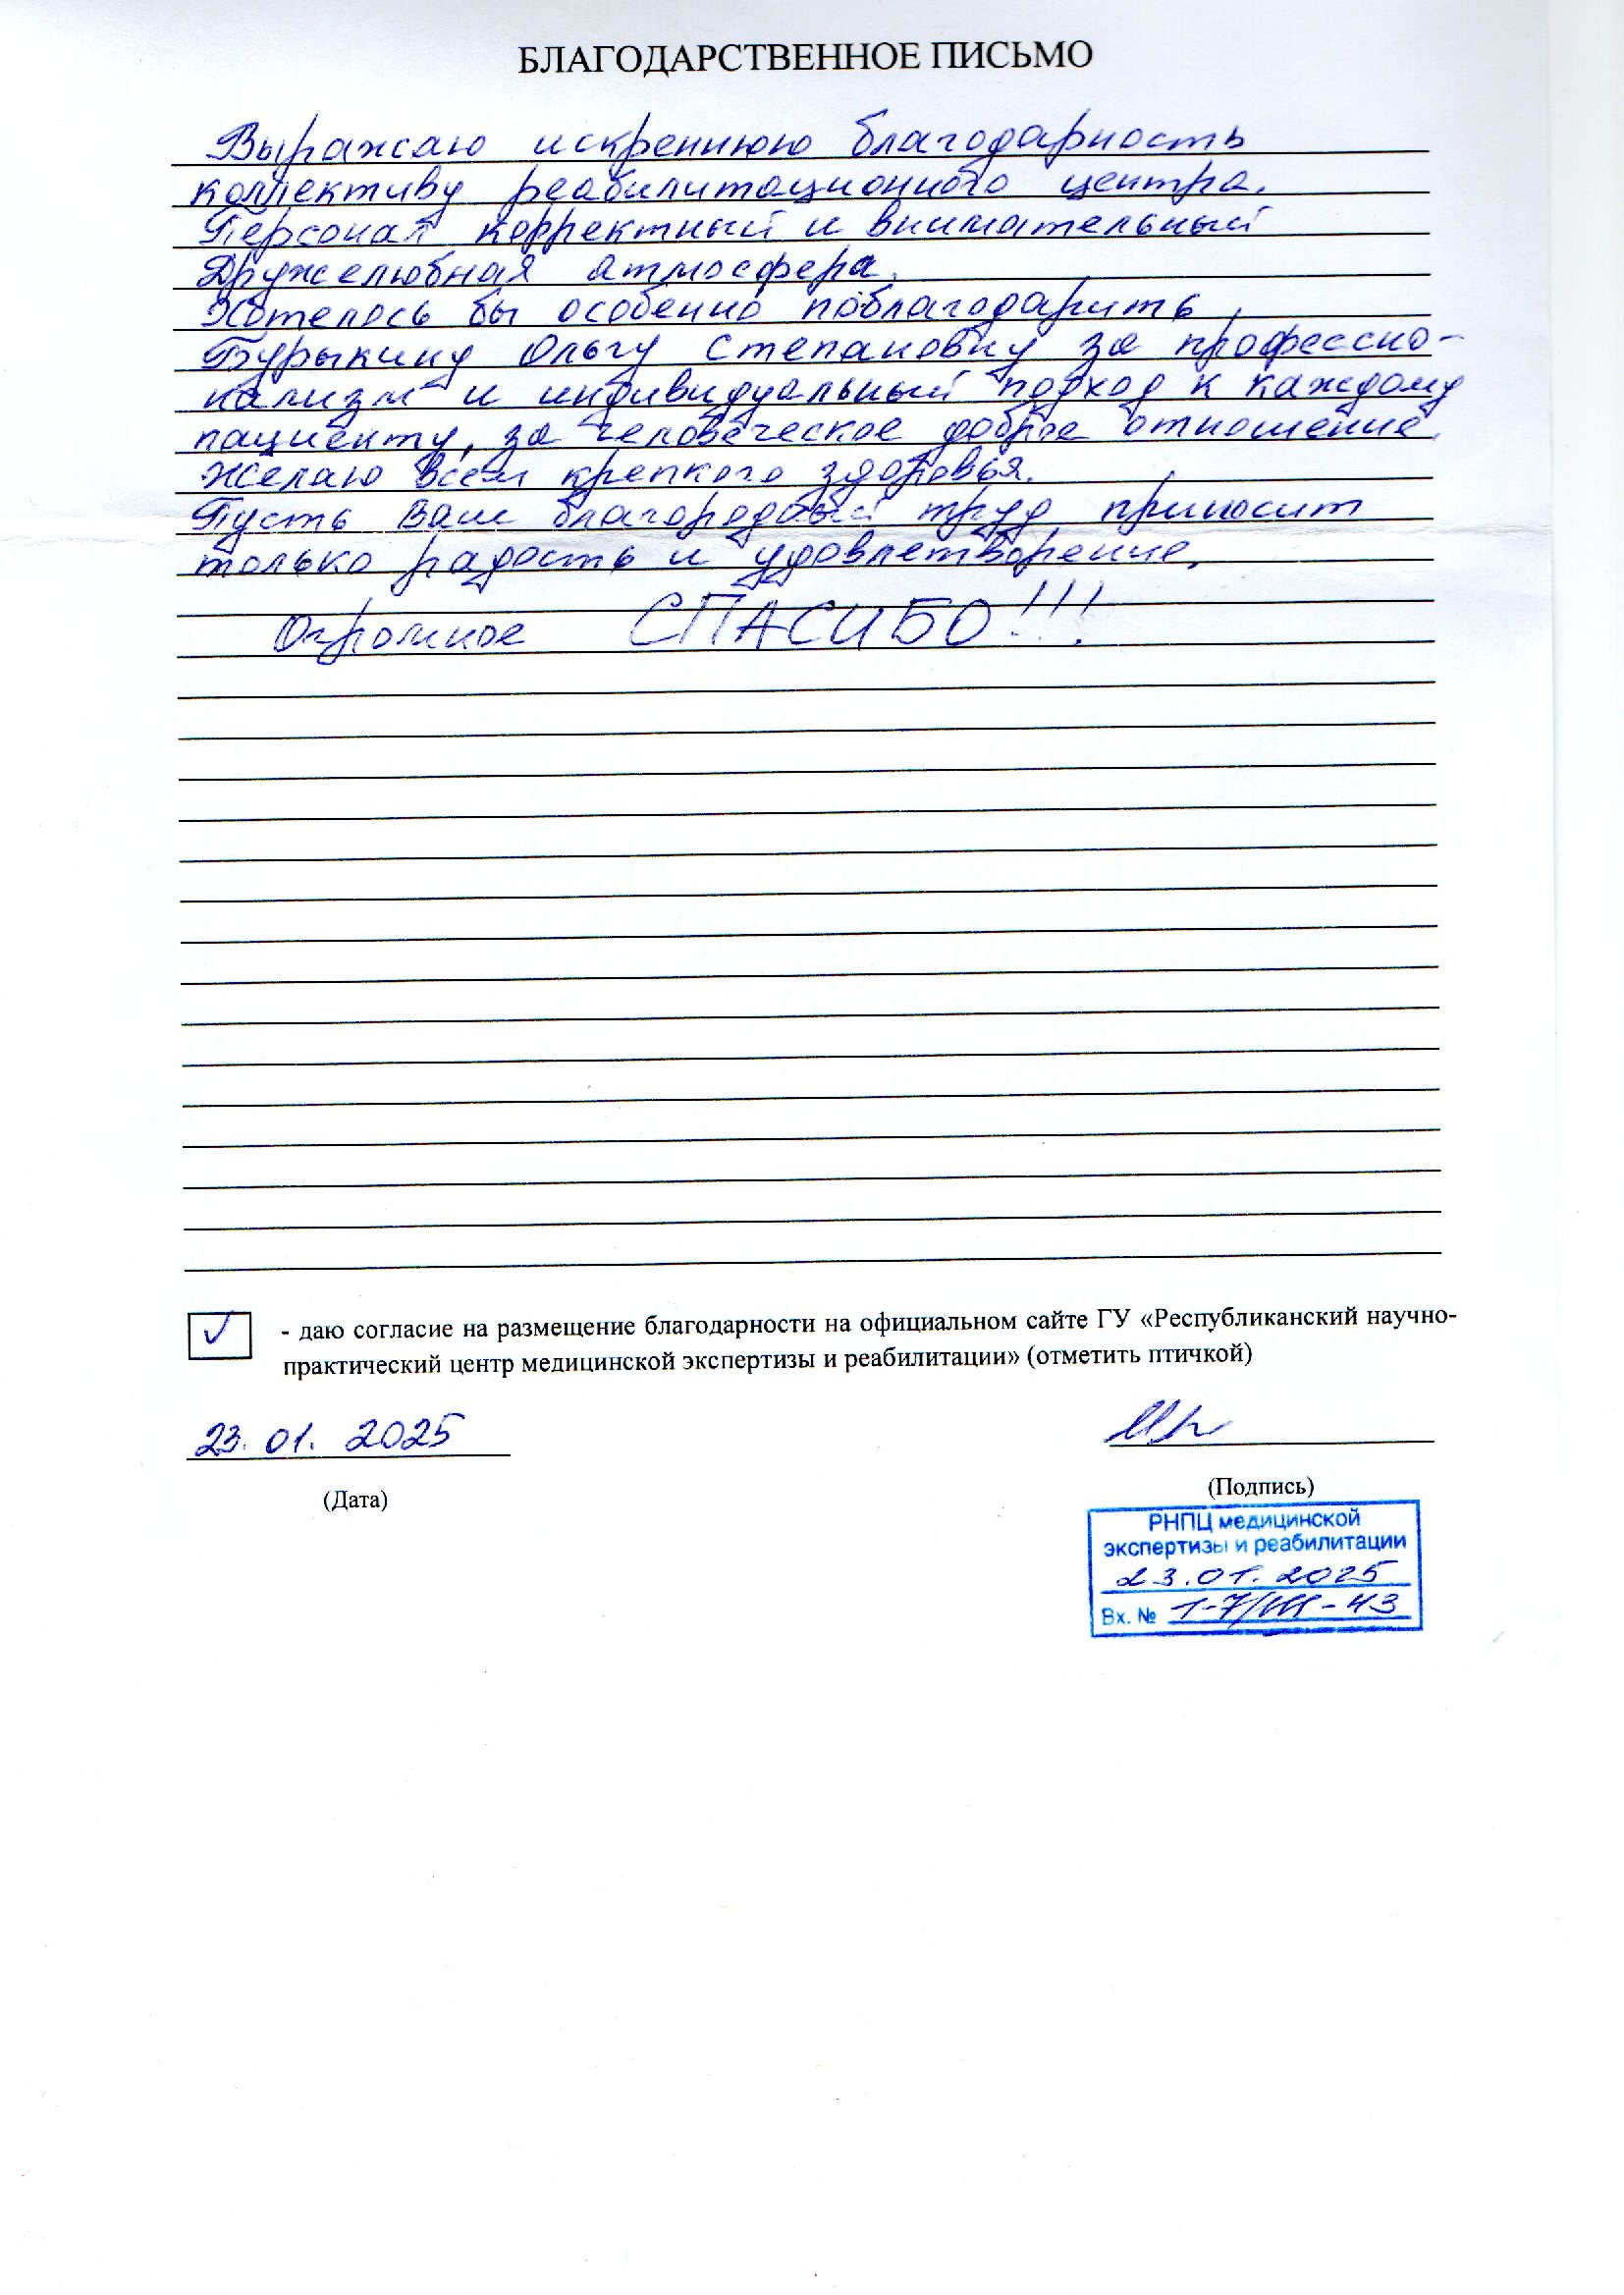 БЛАГОДАРСТВЕННОЕ ПИСЬМО
Выражаю искреннюю благодарность
коллективу реабилитационного центра.
Персонал корректный и внимательный
Дружелюбная атмосфера.
Хотелось бы особенно поблагодарить
Бурыкину Ольгу Степановну за профессио-
нализм и индивидуальный подход к каждому
пациенту, за человеческое доброе отношение.
Желаю всем крепкого здоровья.
Пусть Ваш благородный труд приносит
только радость и удовлетворение.
Огромное СПАСИБО!!!
- даю согласие на размещение благодарности на официальном сайте ГУ «Республиканский научно-
практический центр медицинской экспертизы и реабилитации» (отметить птичкой)
23.01.2025
(Дата)
(Подпись)
РНПЦ медицинской
экспертизы и реабилитации
23.01.2025
Вх. №